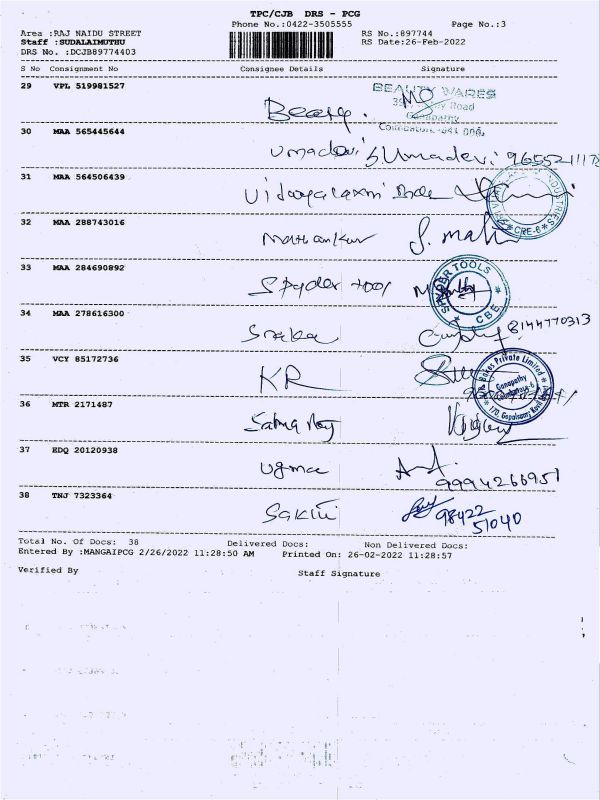 TPC/CJB DRS - PCG
Phone No.:0422-3505555 Page No.:3
Area :RAJ NAIDU STREET RS No.:897744
Staff :SUDALAIMUTHU RS Date:26-Feb-2022
DRS No. :DCJB89774403
S No Consignment No Consignee Details Signature
29 VPL 519981527
BEAUTY WARES
Road
Ganapathy
Coimbatore - 641 006.
30 MAA 565445644
Umadevi S. Umadevi
31 MAA 564506439
Vijayalaxmi
32 MAA 288743016
33 MAA 284690892
Spyder tool
SPYDER TOOLS
CBE
34 MAA 278616300
Sneka 8144770313
35 VCY 85172736
KR
Bakes Private Limited
Ganapathy
36 MTR 2171487
37 EDQ 20120938
ugma
9994266951
38 TNJ 7323364
Sakthi 98422
51040
Total No. Of Docs: 38 Delivered Docs: Non Delivered Docs:
Entered By :MANGAIPCG 2/26/2022 11:28:50 AM Printed On: 26-02-2022 11:28:57
Verified By Staff Signature